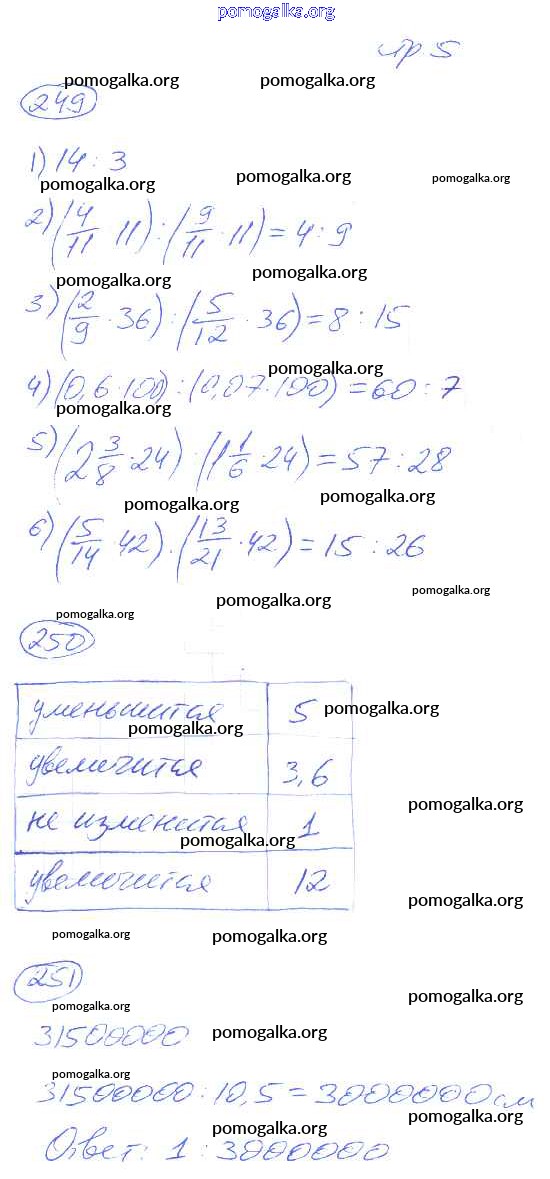 pomogalka.org
пр 5
pomogalka.org pomogalka.org
249
1) 14 : 3
pomogalka.org pomogalka.org pomogalka.org
2) (4/11 · 11) : (9/11 · 11) = 4 : 9
pomogalka.org pomogalka.org
3) (2/9 · 36) : (5/12 · 36) = 8 : 15
pomogalka.org
4) (0,6 · 100) : (0,07 · 100) = 60 : 7
pomogalka.org
5) (2 3/8 · 24) : (1 1/6 · 24) = 57 : 28
pomogalka.org pomogalka.org
6) (5/14 · 42) : (13/21 · 42) = 15 : 26
pomogalka.org pomogalka.org
pomogalka.org
250
уменьшится 5 pomogalka.org
pomogalka.org
увеличится 3,6
pomogalka.org
не изменится 1
pomogalka.org
увеличится 12
pomogalka.org
pomogalka.org pomogalka.org
251
pomogalka.org
pomogalka.org
31500000 pomogalka.org
pomogalka.org
31500000 : 10,5 = 3000000 см
pomogalka.org
pomogalka.org
Ответ: 1 : 3000000